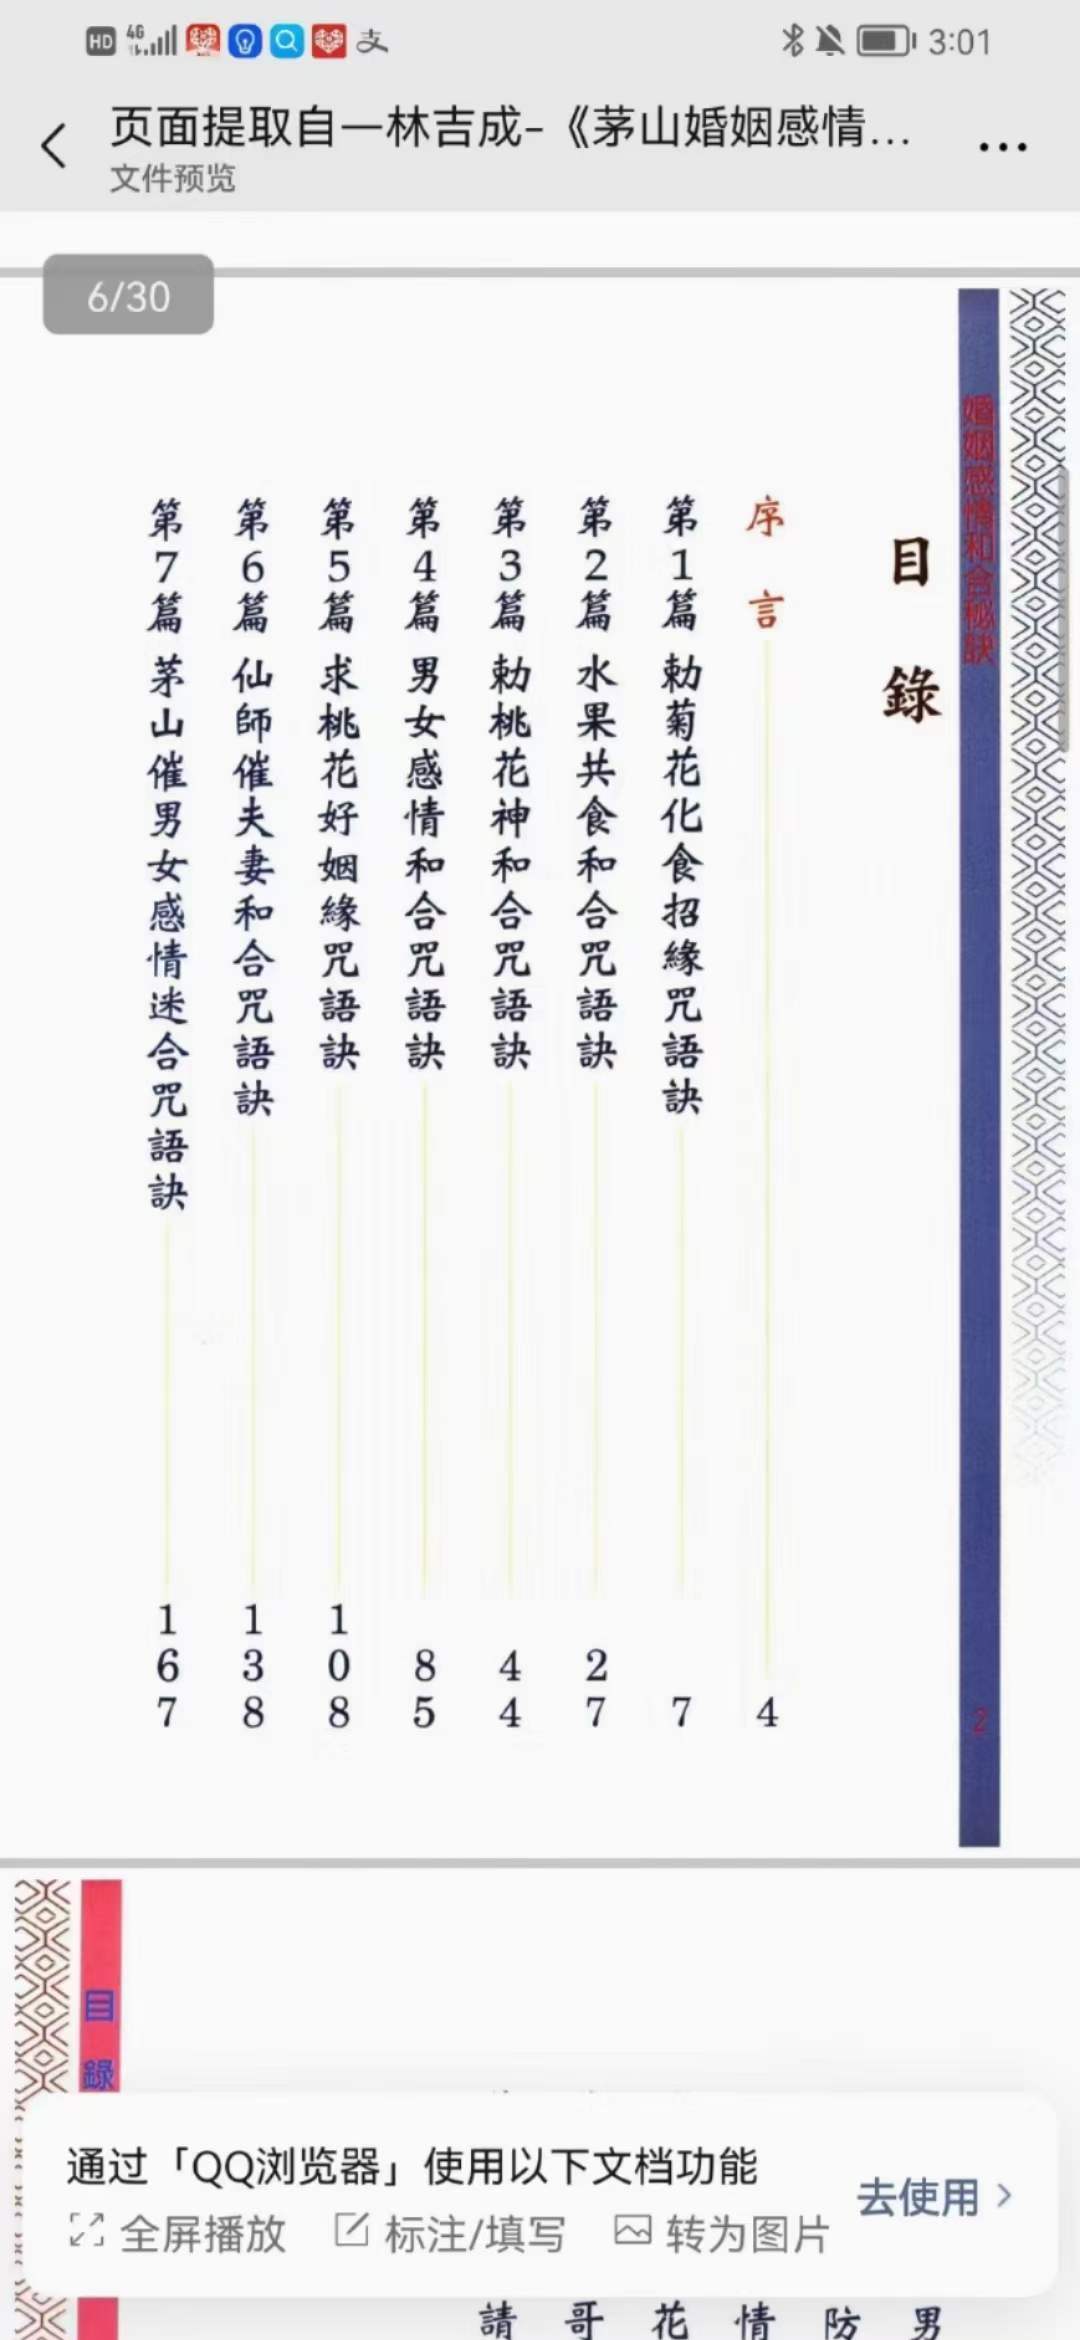 HD 4G 支 3:01
页面提取自—林吉成-《茅山婚姻感情...
文件预览
6/30
婚姻感情和合秘訣
2
目錄
序言 4
第1篇 勅菊花化食招緣咒語訣 7
第2篇 水果共食和合咒語訣 27
第3篇 勅桃花神和合咒語訣 44
第4篇 男女感情和合咒語訣 85
第5篇 求桃花好姻緣咒語訣 108
第6篇 仙師催夫妻和合咒語訣 138
第7篇 茅山催男女感情迷合咒語訣 167
目錄
通过「QQ浏览器」使用以下文档功能
全屏播放 标注/填写 转为图片
去使用
請 哥 花 情 防 男